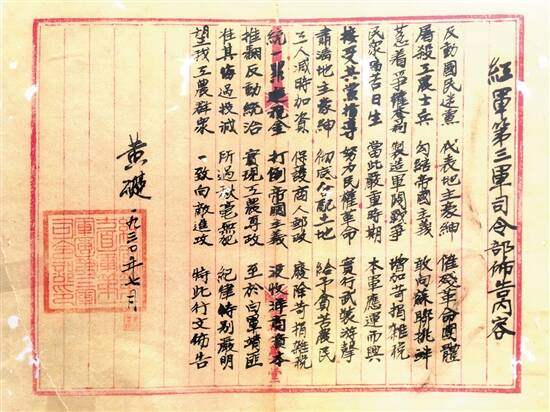 紅軍第三軍司令部佈告內容
反動國民迷黨 代表地主豪紳 催殘革命團體
屠殺工農士兵 勾結帝國主義 敢向蘇聯挑衅
爭權奪利 製造軍閥戰爭 增加苛捐雜稅
民衆痛苦日生 當此嚴重時期 本軍應運而興
接受共黨指導 努力民權革命 實行武裝游擊
肅清地主豪紳 彻底分配土地 給予貧苦農民
工人減時加資 保護商人郵政 廢除苛捐雜稅
統一累進稅金 打倒帝國主義 沒收洋商資本
推翻反動統治 實現工農專政 至於白軍靖匪
准其悔過投誠 所過秋毫無犯 紀律特別嚴明
望我工農群衆 一致向敵進攻 特此行文佈告
黃
一九三〇年七月